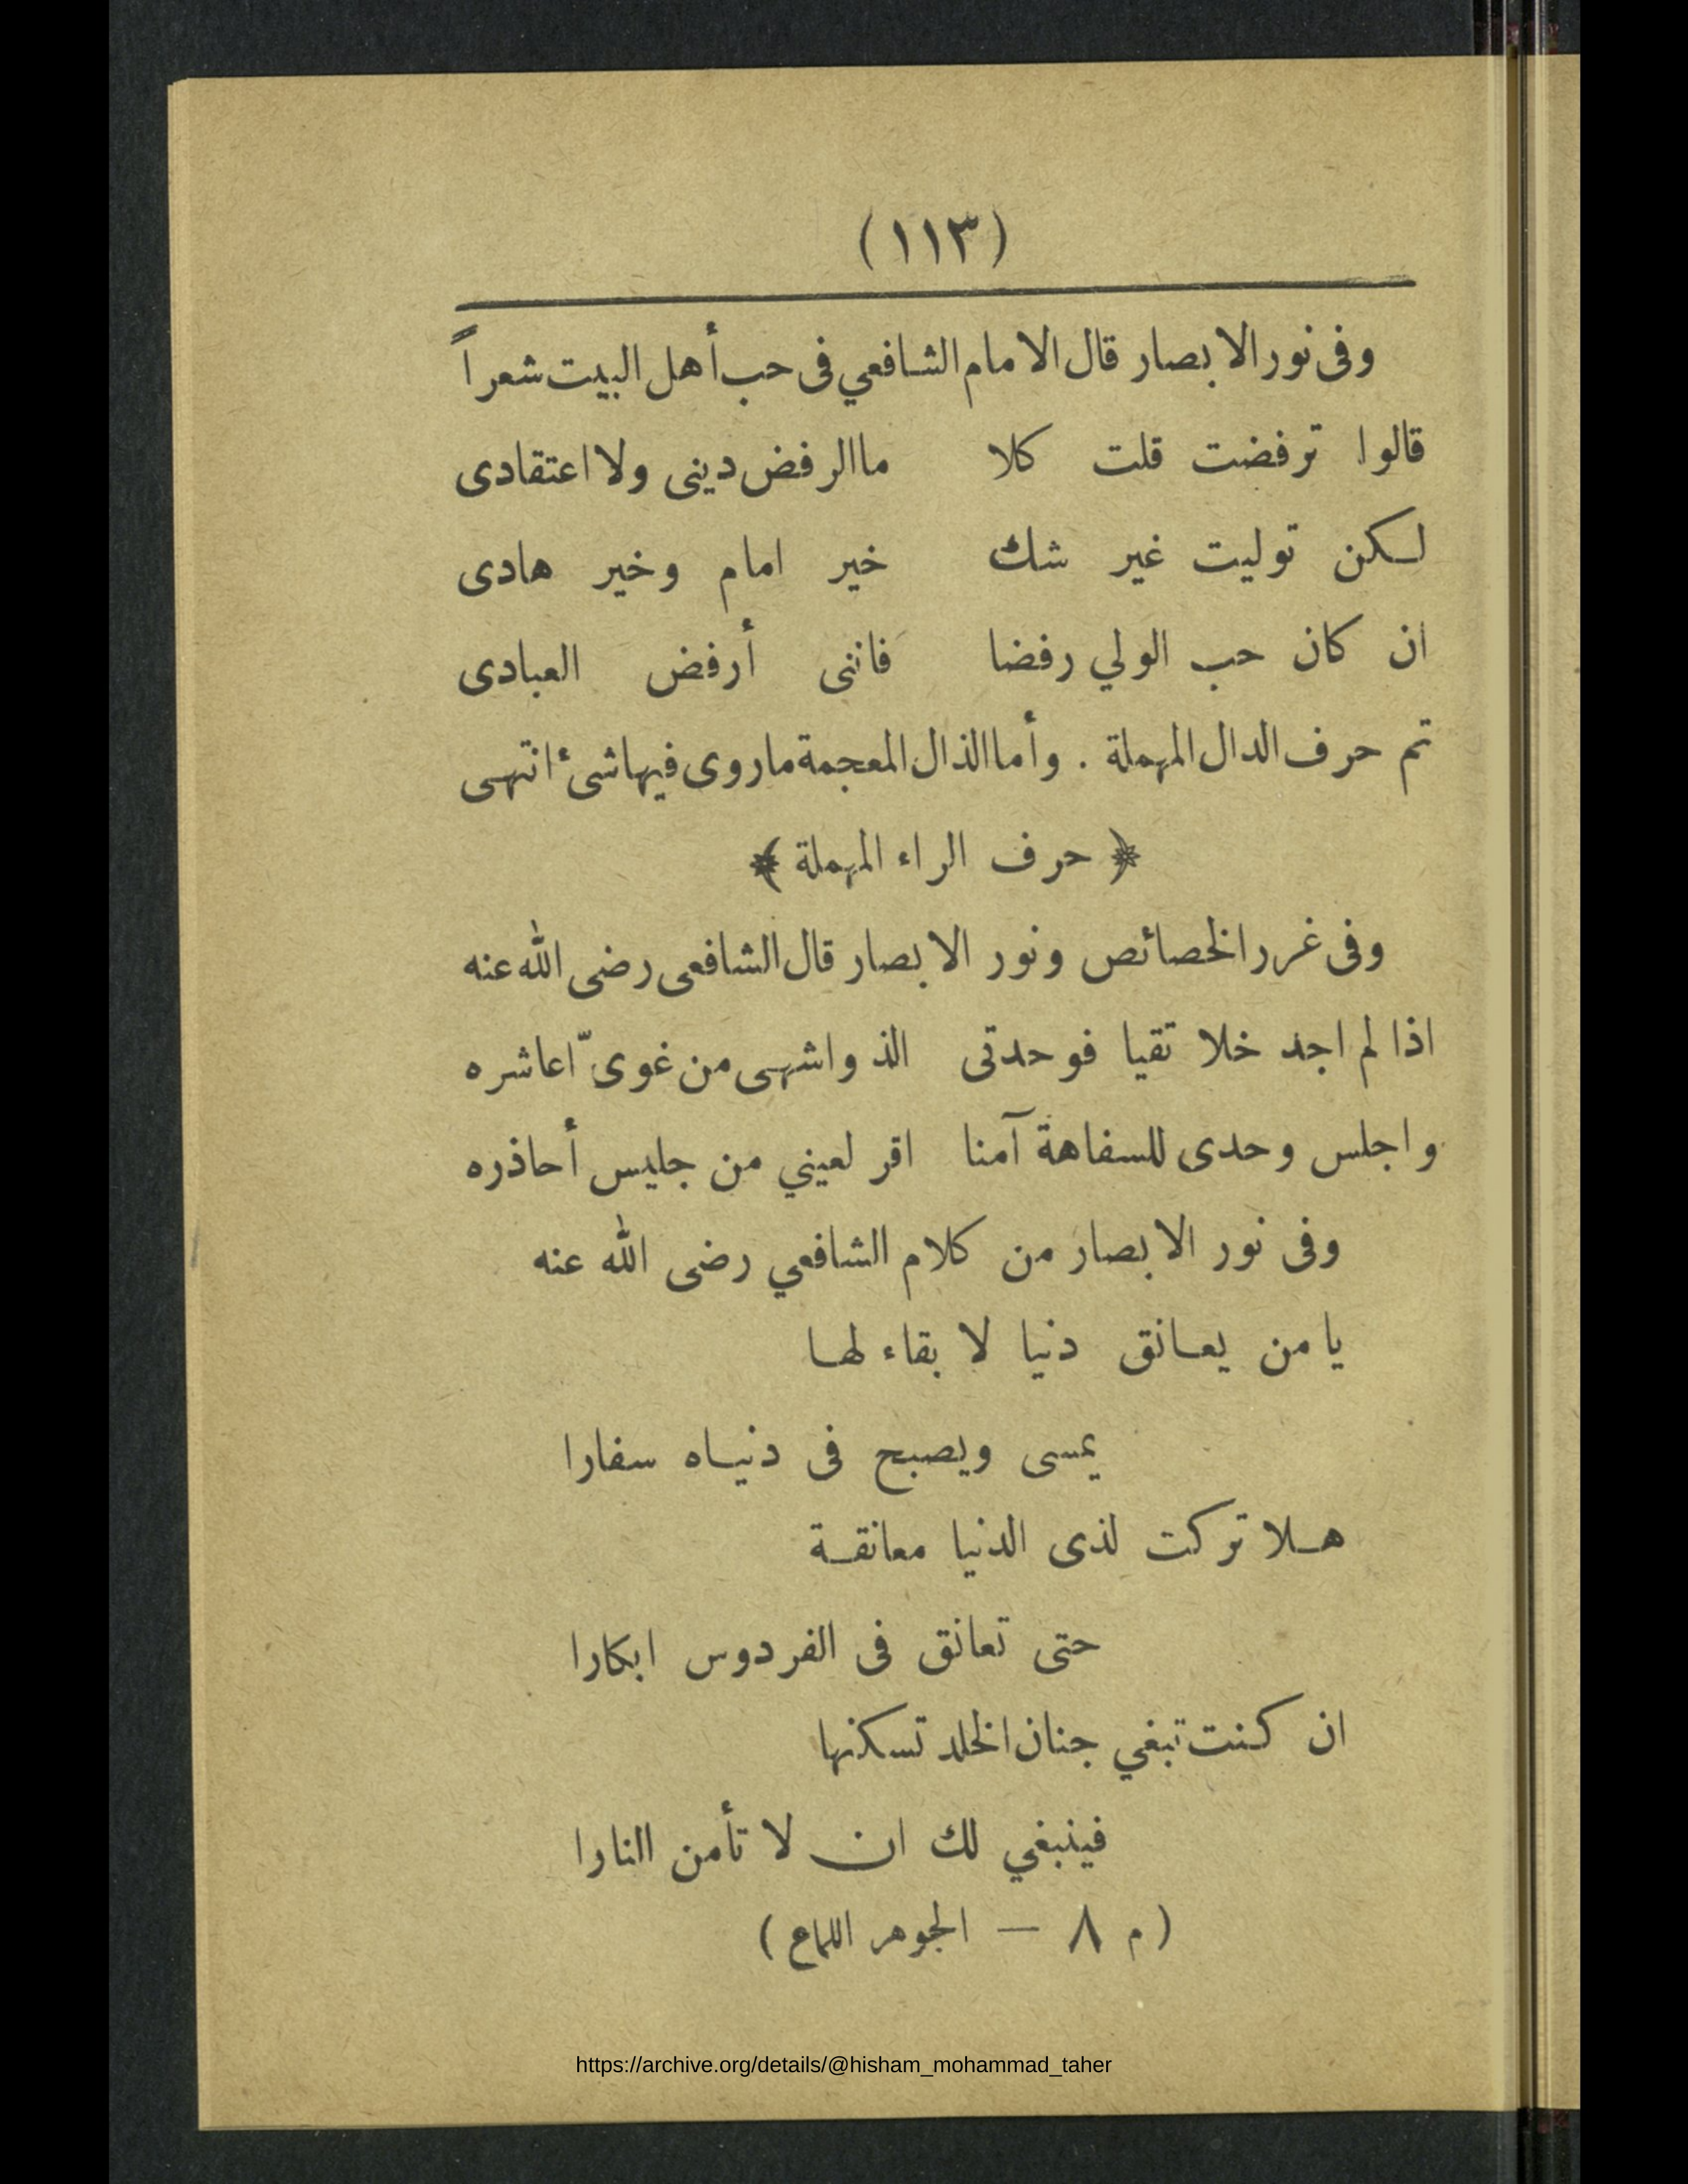 (١١٣)
وفى نور الابصار قال الامام الشافعي فى حب أهل البيت شعراً
قالوا ترفضت قلت كلا ماالرفض دينى ولا اعتقادى
لكن توليت غير شك خير امام وخير هادى
ان كان حب الولي رفضا فاننى أرفض العبادى
تم حرف الدال المهملة . وأما الذال المعجمة ماروى فيها شئ انتهى
﴿ حرف الراء المهملة ﴾
وفى غرر الخصائص ونور الابصار قال الشافعى رضى الله عنه
اذا لم اجد خلا تقيا فوحدتى الذ واشهى من غوىّ اعاشره
واجلس وحدى للسفاهة آمنا اقر لعيني من جليس أحاذره
وفى نور الابصار من كلام الشافعي رضى الله عنه
يا من يعانق دنيا لا بقاء لها
يمسى ويصبح فى دنياه سفارا
هلا تركت لذى الدنيا معانقة
حتى تعانق فى الفردوس ابكارا
ان كنت تبغي جنان الخلد تسكنها
فينبغي لك ان لا تأمن النارا
(م ٨ — الجوهر اللماع)
https://archive.org/details/@hisham_mohammad_taher